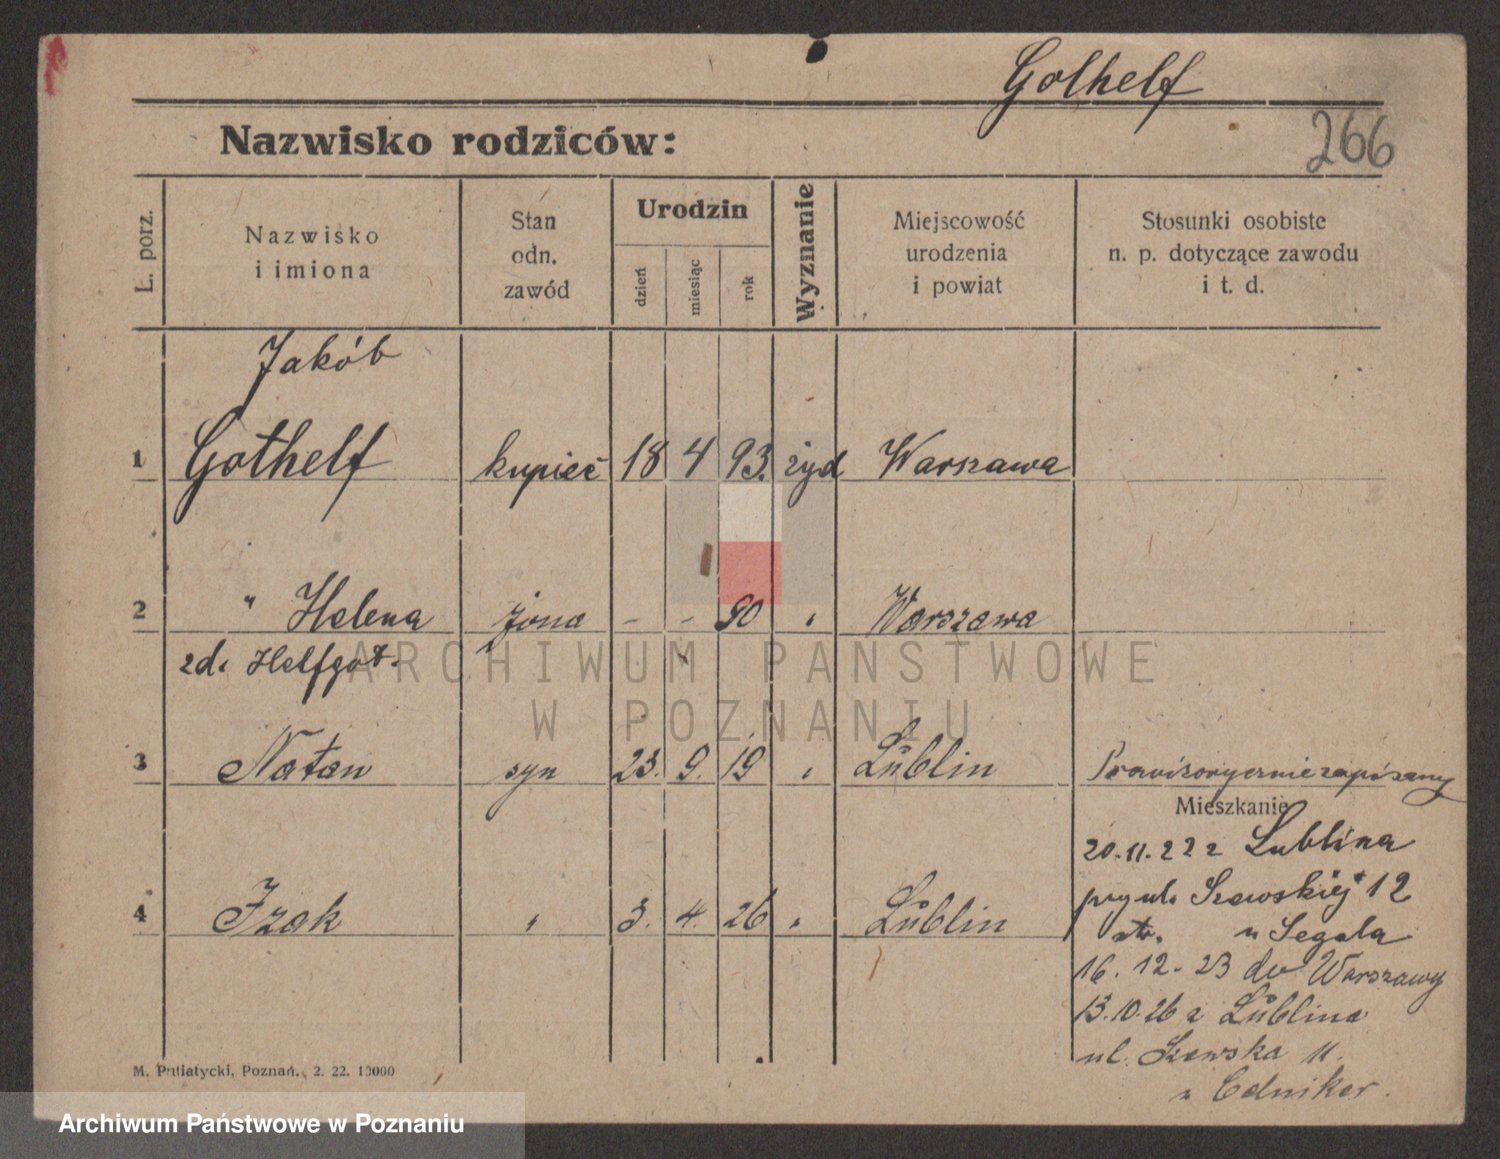 Golhelf
266
Nazwisko rodziców:
L. porz.
Nazwisko
i imiona
Stan
odn.
zawód
Urodzin
dzień
miesiąc
rok
Wyznanie
Miejscowość
urodzenia
i powiat
Stosunki osobiste
n. p. dotyczące zawodu
i t. d.
Jakób
1 Gothelf kupiec 18 4 93. żyd Warszawa
2 " Helena żona - - 90 " Warszawa
zd. Helfgot.
3 Natan syn 23. 9. 19 " Lublin Prowizorycznie zapisany
Mieszkanie
20.11.22 z Lublina
przy ul. Szewskiej 12
u Segala
4 Izak " 3. 4. 26 " Lublin
16.12.23 do Warszawy
13.10.26 z Lublina
ul. Szewska 11.
u
M. Putiatycki, Poznań. 2. 22. 10000
ARCHIWUM PAŃSTWOWE
W POZNANIU
Archiwum Państwowe w Poznaniu